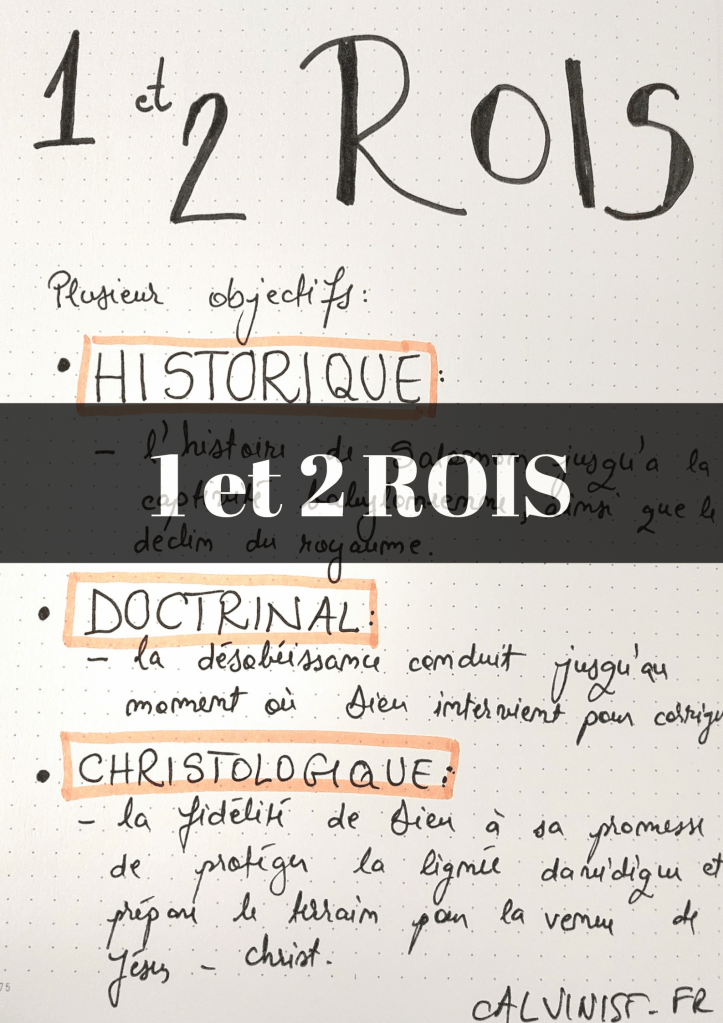 1 et 2 ROIS
Plusieur objectifs:
• HISTORIQUE:
– l'histoire de Salomon jusqu'a la
1 et 2 ROIS
captivité babylonienne, ainsi que le
déclin du royaume.
• DOCTRINAL:
– la désobéissance conduit jusqu'au
moment où Dieu intervient pour corrige
• CHRISTOLOGIQUE:
– la fidélité de Dieu à sa promesse
de protéger la lignée davidique et
prépare le terrain pour la venue de
Jésus - Christ.
CALVINIST-FR
75